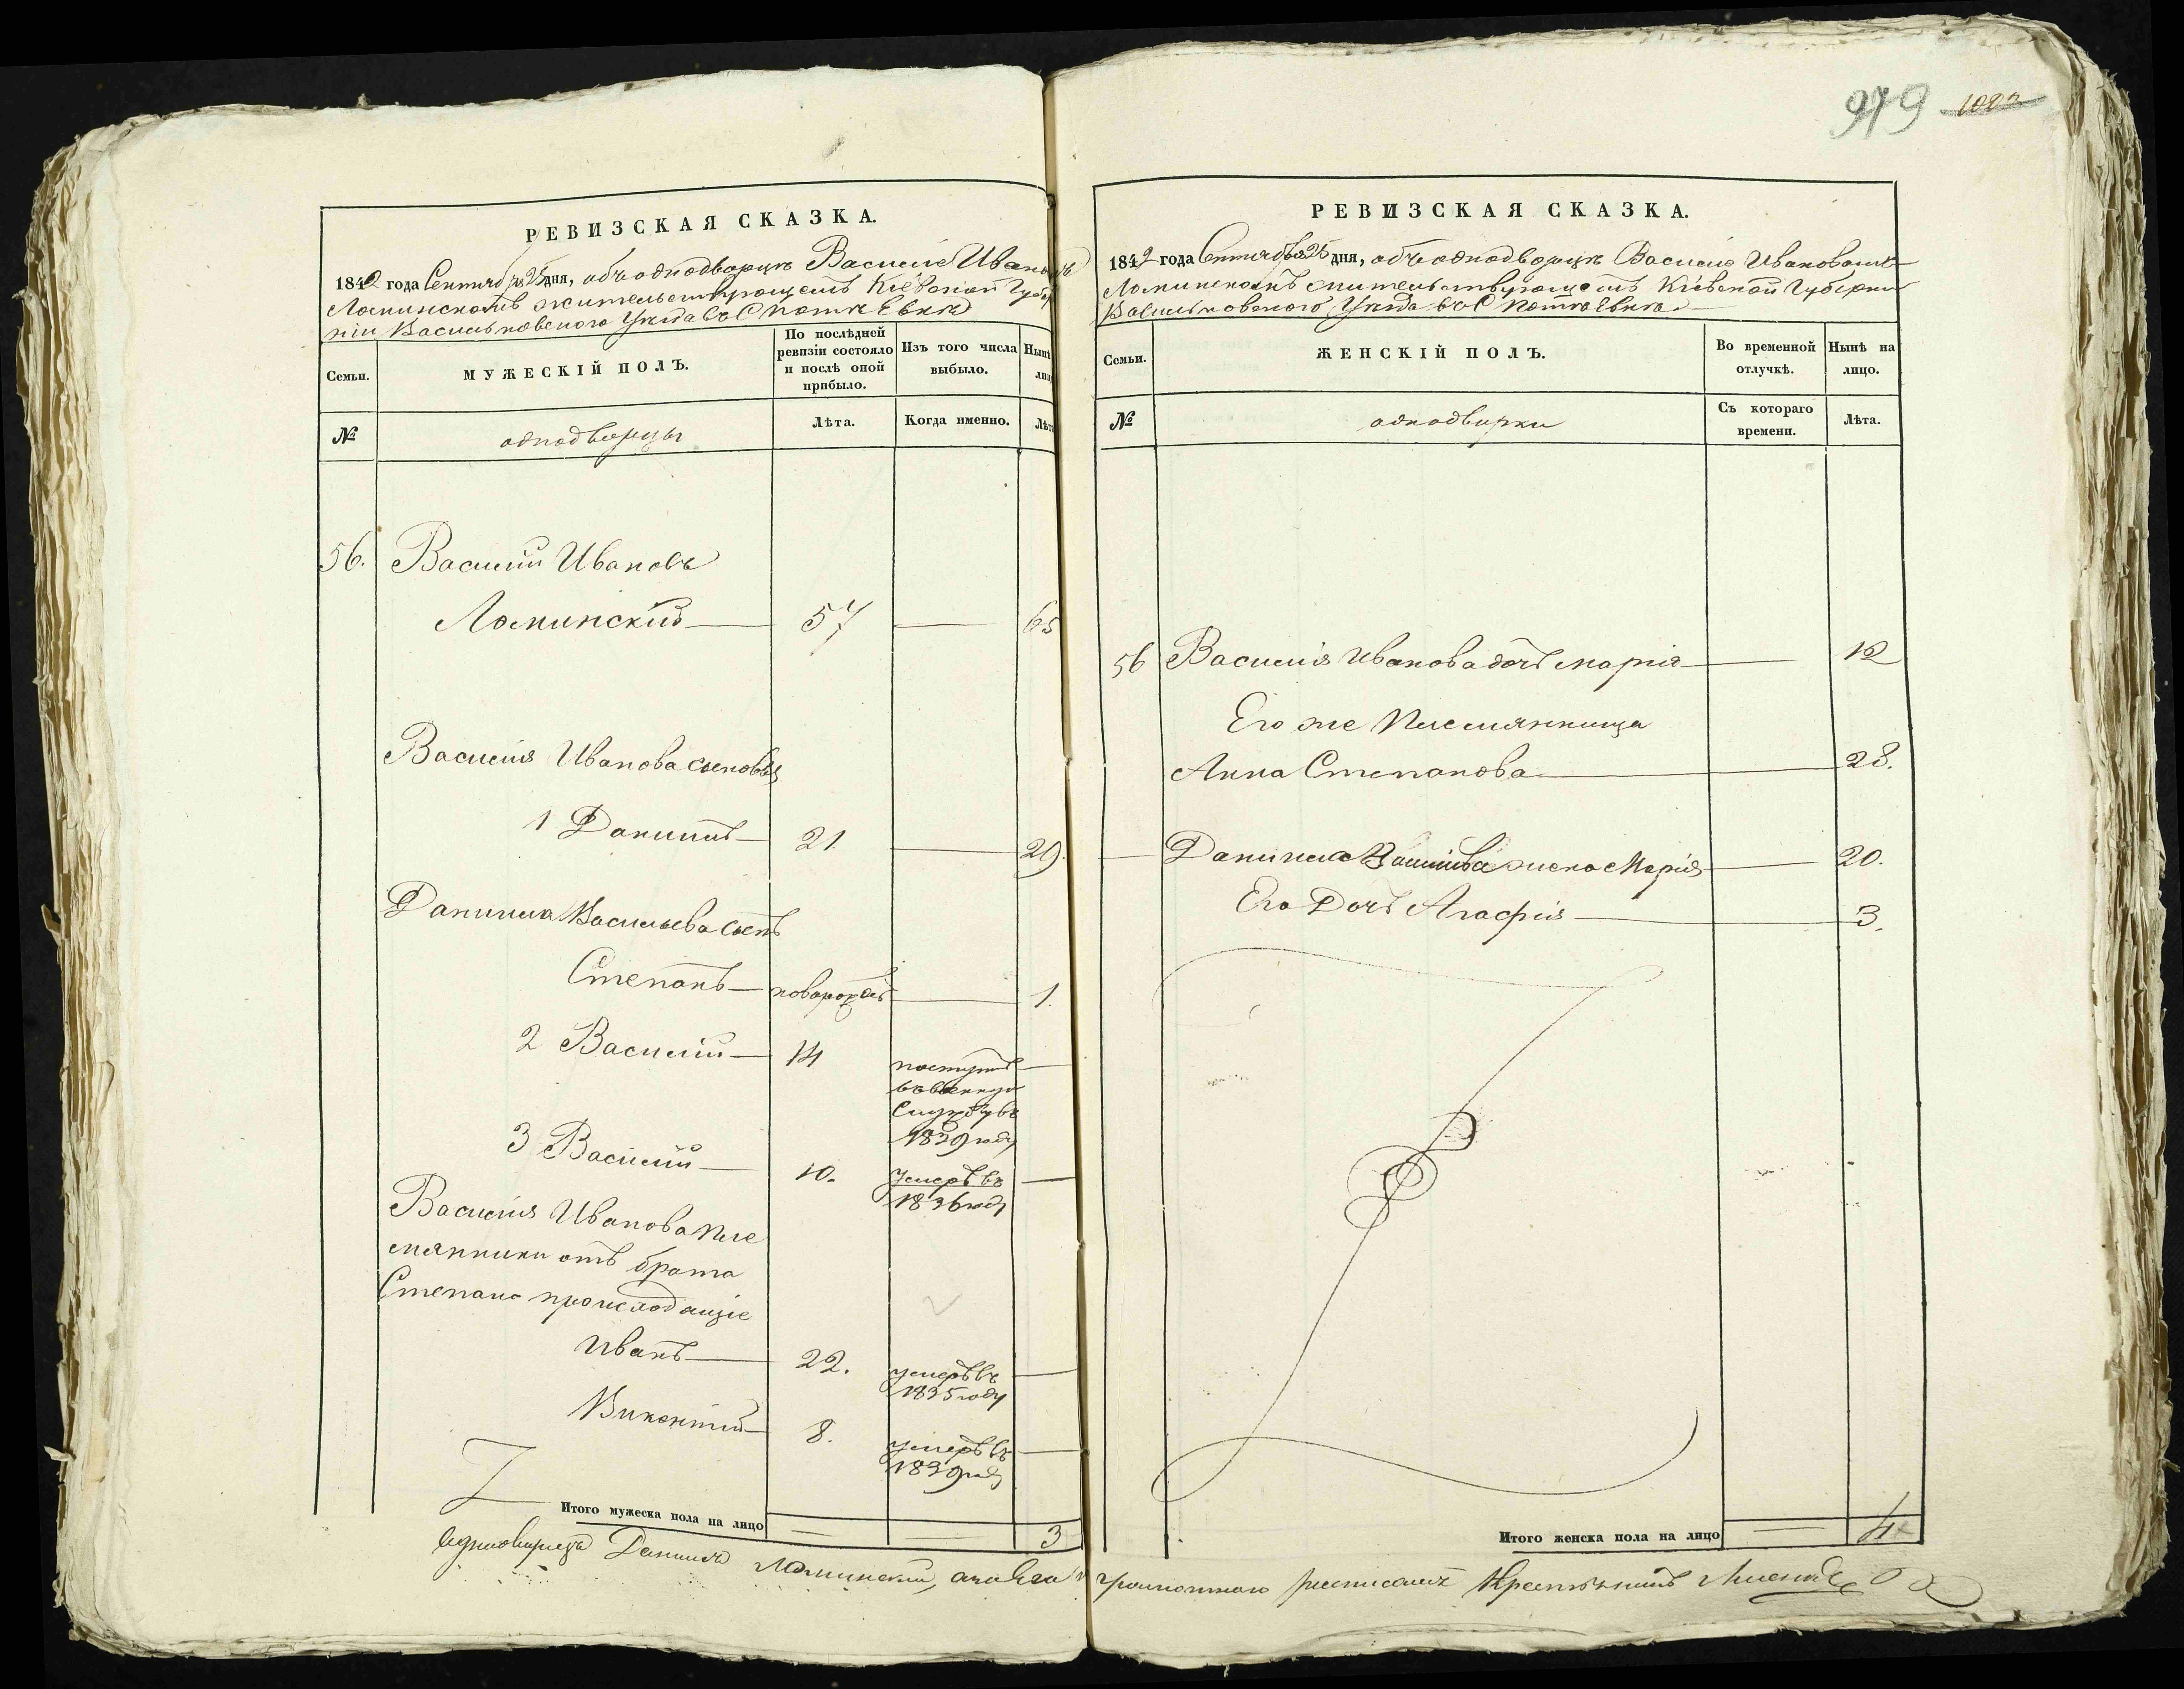 979 1022
РЕВИЗСКАЯ СКАЗКА.
1842 года Сентября 25 дня, объ однодворцѣ Василіѣ Ивановѣ
Ломинскомъ жительствующемъ Кіевской Губер
ніи Васильковскаго Уѣзда въ С
Семьи.
МУЖЕСКІЙ ПОЛЪ.
По послѣдней ревизіи состояло и послѣ оной прибыло.
Изъ того числа выбыло.
Нынѣ
лиц
№
однодворцы
Лѣта.
Когда именно.
Лѣт
56. Василій Ивановъ
Ломинскій 57 65
Василія Иванова сыновья
1 Данило 21 29.
Данила Васильева сынъ
Степанъ новорожд 1.
2 Василій 14 поступ
въ военную
службу въ
1839 году
3 Василій 10. умеръ въ
1836 году
Василія Иванова пле
мянники отъ брата
Степана происходящіе
Иванъ 22. умеръ въ
1835 году
Викентій 8. умеръ въ
1839 году
Итого мужеска пола на лицо 3
РЕВИЗСКАЯ СКАЗКА.
1842 года Сентября 25 дня, объ однодворцѣ Василіѣ Ивановомъ
Ломинскомъ жительствующемъ Кіевской Губерніи
Васильковскаго Уѣзда въ С
Семьи.
ЖЕНСКІЙ ПОЛЪ.
Во временной отлучкѣ.
Нынѣ на лицо.
№
однодворки
Съ котораго времени.
Лѣта.
56 Василія Иванова дочь Марія 12
Его же Племянница
Анна Степанова 28.
Данила Васильева жена Марія 20.
Его Дочь Агафія 3.
Итого женска пола на лицо 4
Однодворецъ Данило Ломинскій, а за его